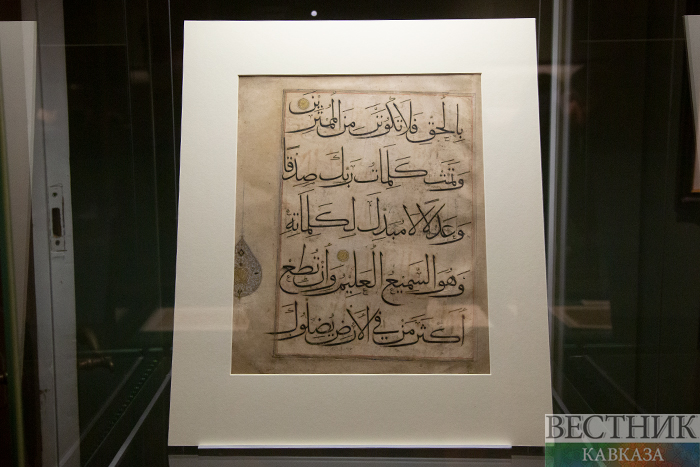 بِالْحَقِّ فَلَا تَكُونَنَّ مِنَ الْمُمْتَرِينَ
وَتَمَّتْ كَلِمَاتُ رَبِّكَ صِدْقًا
وَعَدْلًا لَا مُبَدِّلَ لِكَلِمَاتِهِ
وَهُوَ السَّمِيعُ الْعَلِيمُ وَإِنْ تُطِعْ
أَكْثَرَ مَنْ فِي الْأَرْضِ يُضِلُّوكَ
ВЕСТНИК
КАВКАЗА